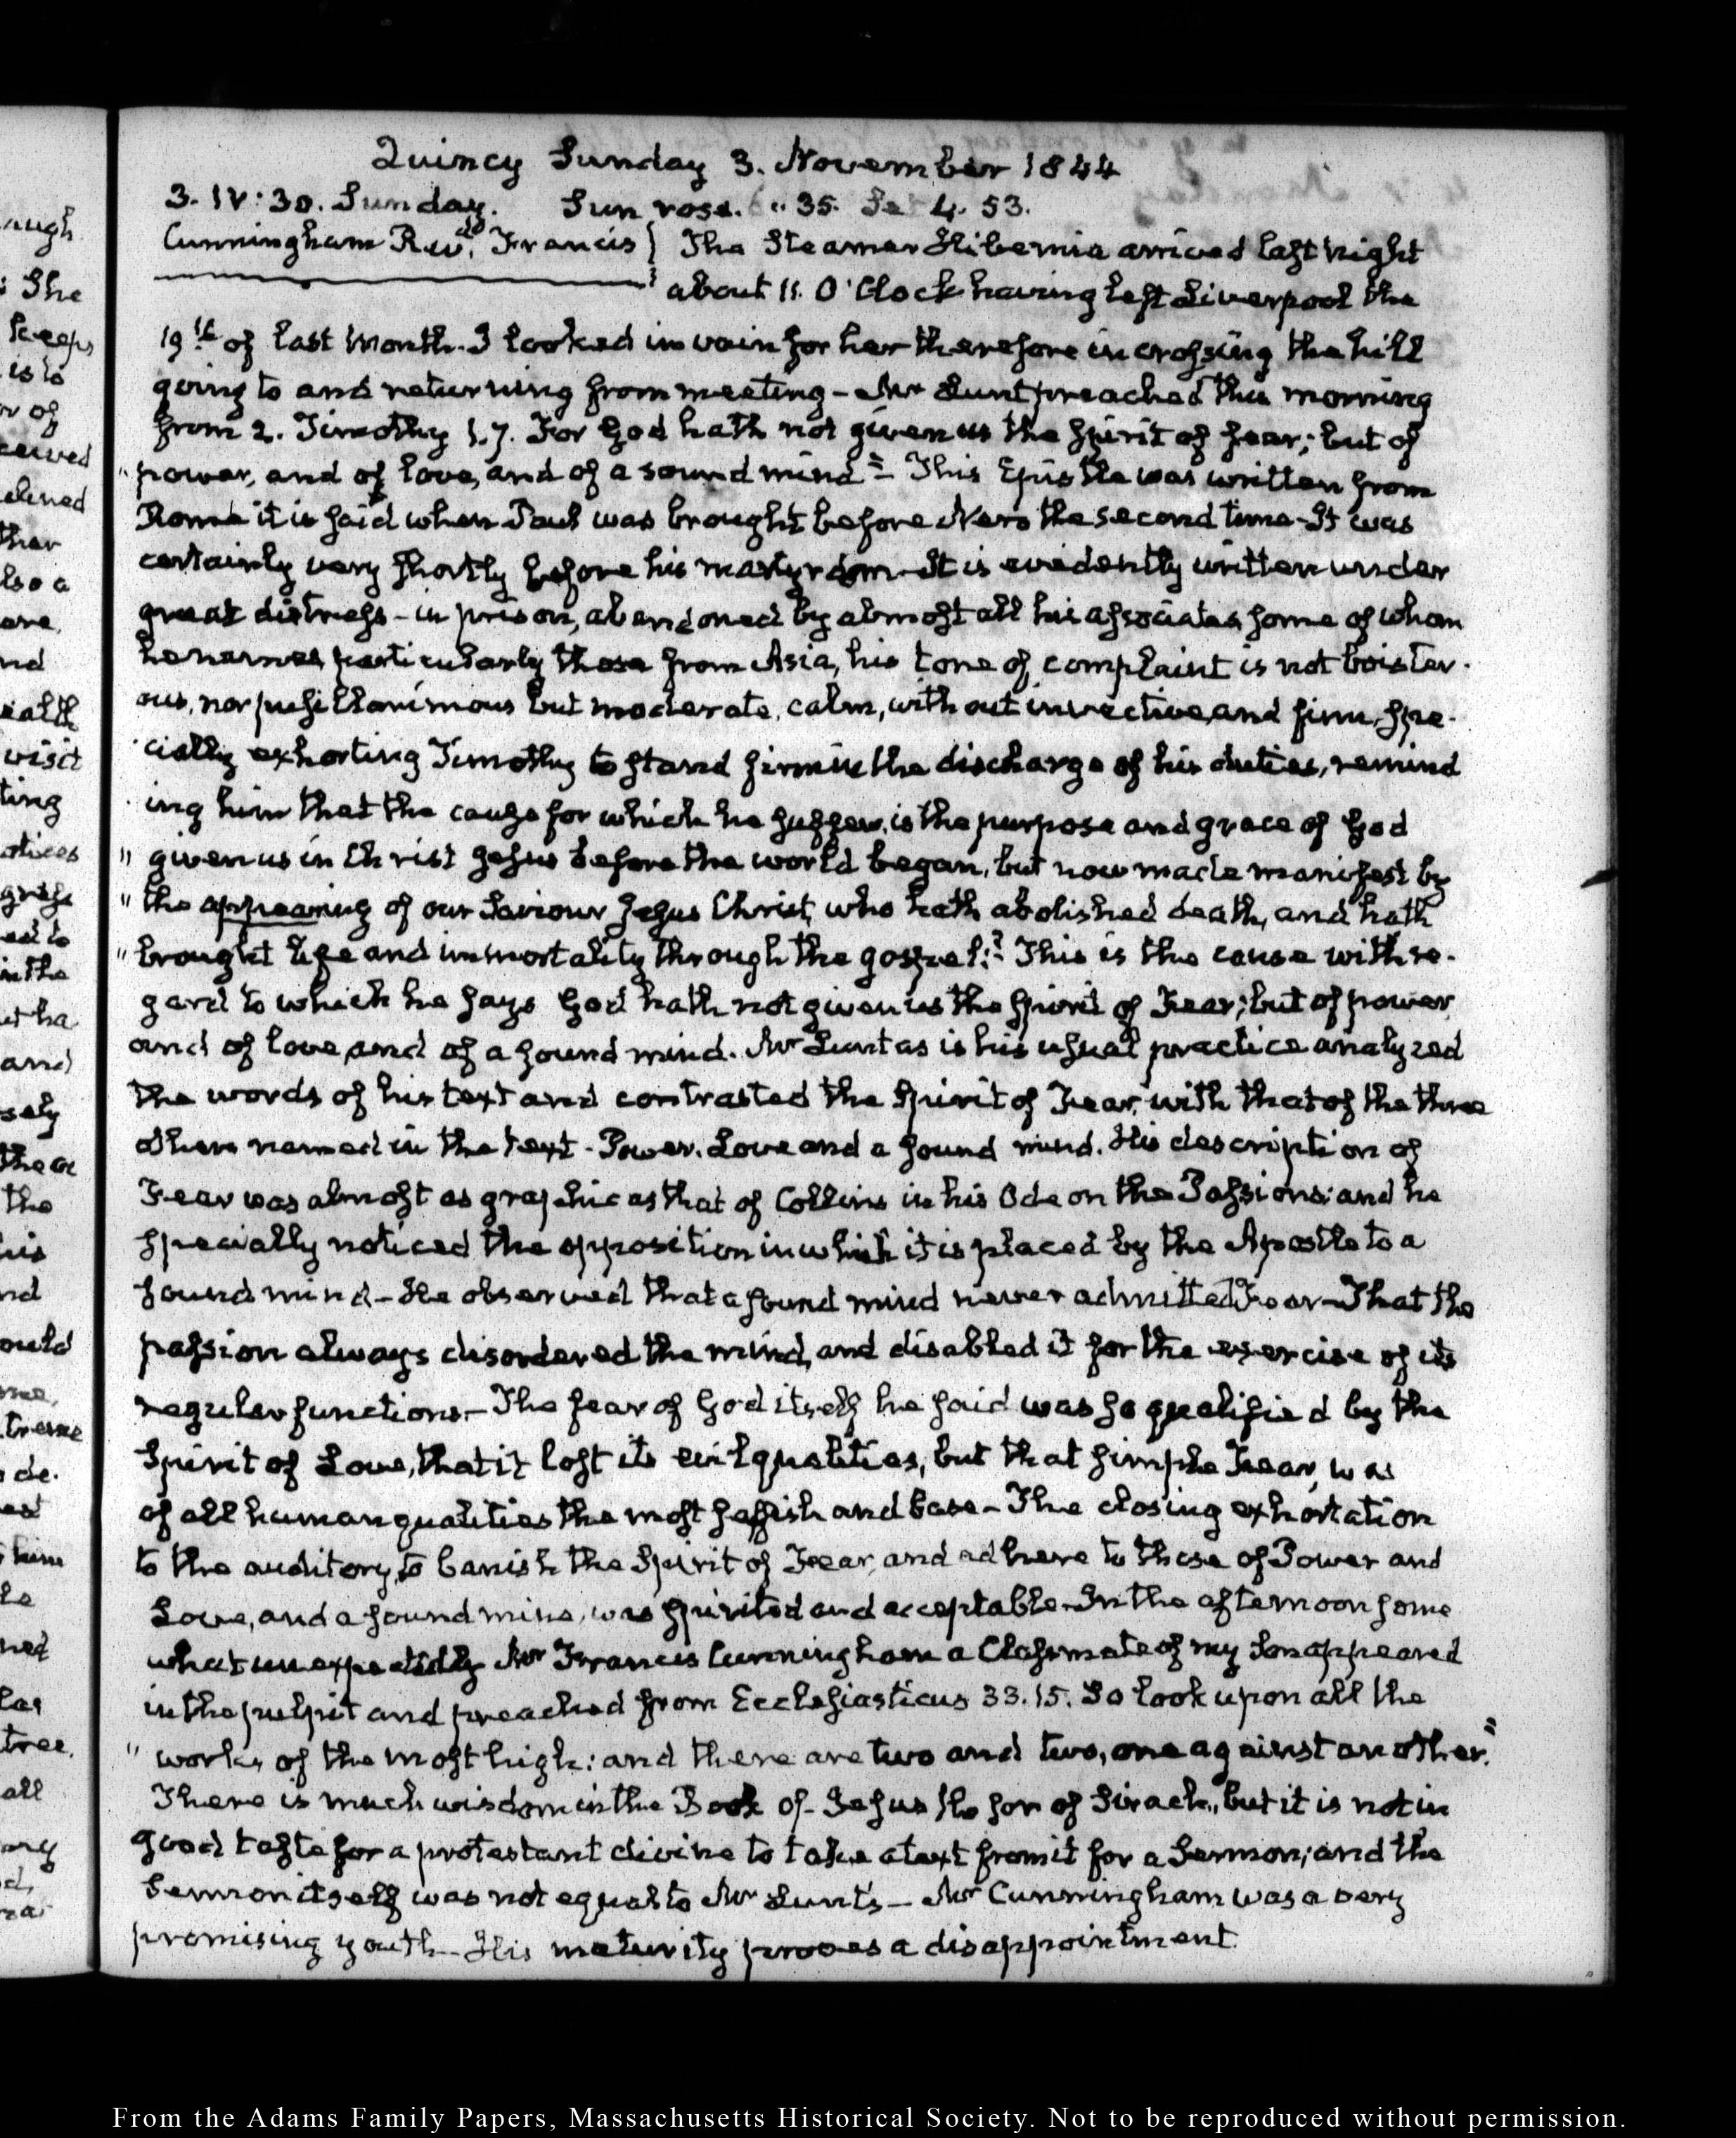 Quincy Sunday 3. November 1844
3. IV:30. Sunday. Sun rose. 6 " 35. Set 4. 53.
Cunningham Revd. Francis
The Steamer Hibernia arrived last Night
about 11. O'Clock having left Liverpool the
19th of last Month. I looked in vain for her therefore in crossing the hill
going to and returning from meeting - Mr Lunt preached this morning
from 2. Timothy 1.7. For God hath not given us the spirit of fear; but of
" power, and of love, and of a sound mind" - This Epistle was written from
Rome it is said when Paul was brought before Nero the second time - It was
certainly very shortly before his martyrdom - It is evidently written under
great distress - in prison, abandoned by almost all his associates, some of whom
he names, particularly those from Asia, his tone of complaint is not boister-
ous, nor pusillanimous but moderate, calm, without invective, and firm, spe-
cially exhorting Timothy to stand firm in the discharge of his duties, remind
ing him that the cause for which he suffers, is the purpose and grace of God
" given us in Christ Jesus before the world began, but now made manifest by
" the appearing of our Saviour Jesus Christ, who hath abolished death, and hath
" brought life and immortality through the gospel:" This is the cause with re-
gard to which he says God hath not given us the spirit of Fear; but of power
and of love, and of a sound mind. Mr Lunt as is his usual practice analyzed
the words of his text and contrasted the Spirit of Fear, with that of the three
others named in the text - Power, Love and a sound mind. His description of
Fear was almost as graphic as that of Collins in his Ode on the Passions; and he
specially noticed the opposition in which it is placed by the Apostle to a
sound mind - He observed that a sound mind never admitted Fear - That the
passion always disordered the mind, and disabled it for the exercise of its
regular functions. - The fear of God itself he said was so qualified by the
Spirit of Love, that it lost its evil qualities, but that simple Fear, was
of all human qualities the most selfish and base - The closing exhortation
to the auditory, to banish the Spirit of Fear, and adhere to those of Power and
Love, and a sound mind, was spirited and acceptable. In the afternoon some
what unexpectedly Mr Francis Cunningham a Classmate of my Son appeared
in the pulpit and preached from Ecclesiasticus 33.15. So look upon all the
" works of the most high: and there are two and two, one against another."
There is much wisdom in the Book of Jesus the son of Sirach, but it is not in
good taste for a protestant divine to take a text from it for a Sermon; and the
Sermon itself was not equal to Mr Lunt's - Mr Cunningham was a very
promising youth - His maturity proves a disappointment
From the Adams Family Papers, Massachusetts Historical Society. Not to be reproduced without permission.